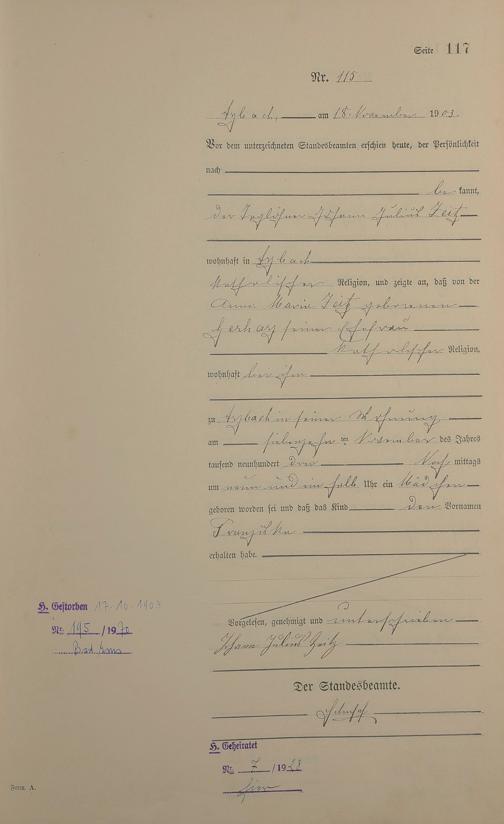 Seite 117
Nr. 115
Arzbach, am 18. November 1903.
Vor dem unterzeichneten Standesbeamten erschien heute, der Persönlichkeit
nach
be kannt,
der Taglöhner Johann Julius Zeitz
wohnhaft in Arzbach
katholischer Religion, und zeigte an, daß von der
Anna Maria Zeitz geborenen
seiner Ehefrau
katholischer Religion,
wohnhaft bei ihm
zu Arzbach in seiner Wohnung
am siebenzehn ten November des Jahres
tausend neunhundert drei Nach mittags
um neun und ein halb Uhr ein Mädchen
geboren worden sei und daß das Kind den Vornamen
Franziska
erhalten habe.
Vorgelesen, genehmigt und unterschrieben
Johann Julius Zeitz
Der Standesbeamte.
H. Gestorben
Nr. 195 /1970
Bad Ems
H. Geheiratet
Nr. 7 /19
hier
Form. A.